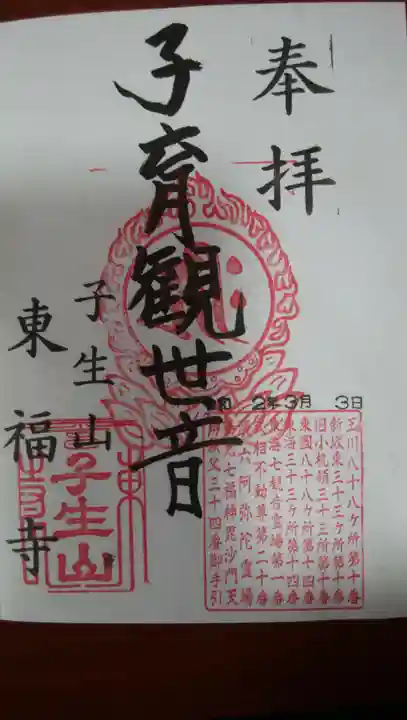 奉拝
2年3月 3日
子育観世音
子生山
東福寺
玉川八十八ヶ所第十番
新坂東三十三ヶ所第十番
旧小机領三十三所第十番
東国八十八ヶ所第十四番
東海三十三ヶ所第十四番
東海七観音霊場第一番
武相不動尊第二十番
六阿弥陀霊場
七福神毘沙門天
秩父三十四番御手引
子生山